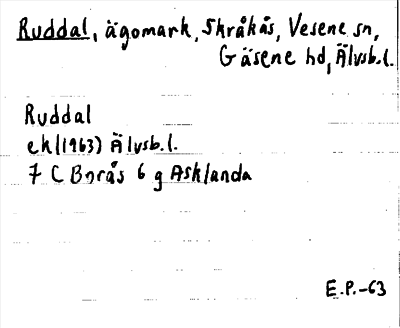 Ruddal, ägomark, Skråkås, Vesene sn,
Gäsene hd, Älvsb.l.
Ruddal
ek(1963) Älvsb.l.
7 C Borås 6 g Asklanda
E.P.-63